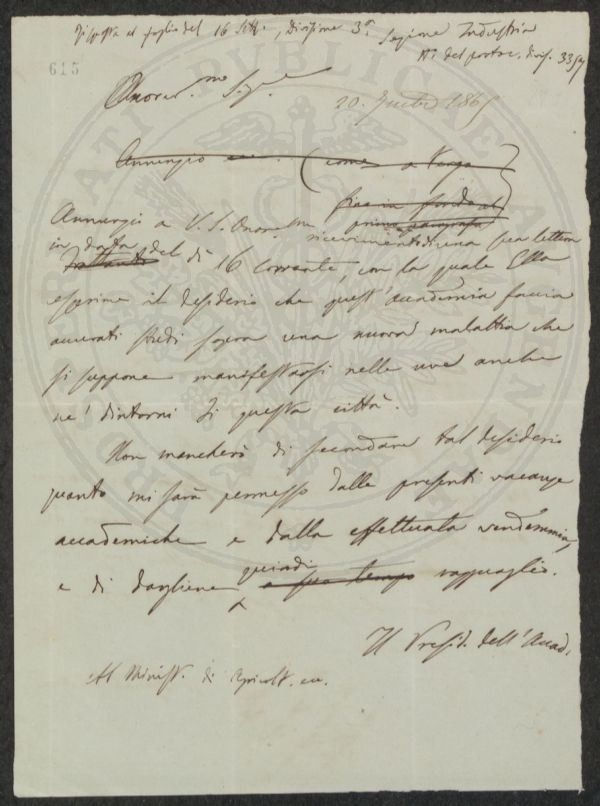 Risposta al foglio del 16 Sette, Divisione 3ª Sezione Industria
Nº del protoc. divis. 3357
615
Onorev.mo Sig.e
20. Settbre 1865
Annunzio (come a tergo)
fine in fondo al
primo paragrafo
Annunzio a V. S. Onor.ma ricevimento di una sua lettera
in data del dì 16 corrente, con la quale Ella
esprime il desiderio che quest'accademia faccia
accurati studi sopra una nuova malattia che
si suppone manifestarsi nelle uve anche
ne' dintorni di questa città.
Non mancherò di secondare tal desiderio
quanto mi sarà permesso dalle presenti vacanze
accademiche e dalla effettuata vendemmia,
e di dargliene quindi a suo tempo ragguaglio.
Il Presid. dell'Accad.
Al Minist. di Agricolt. ecc.